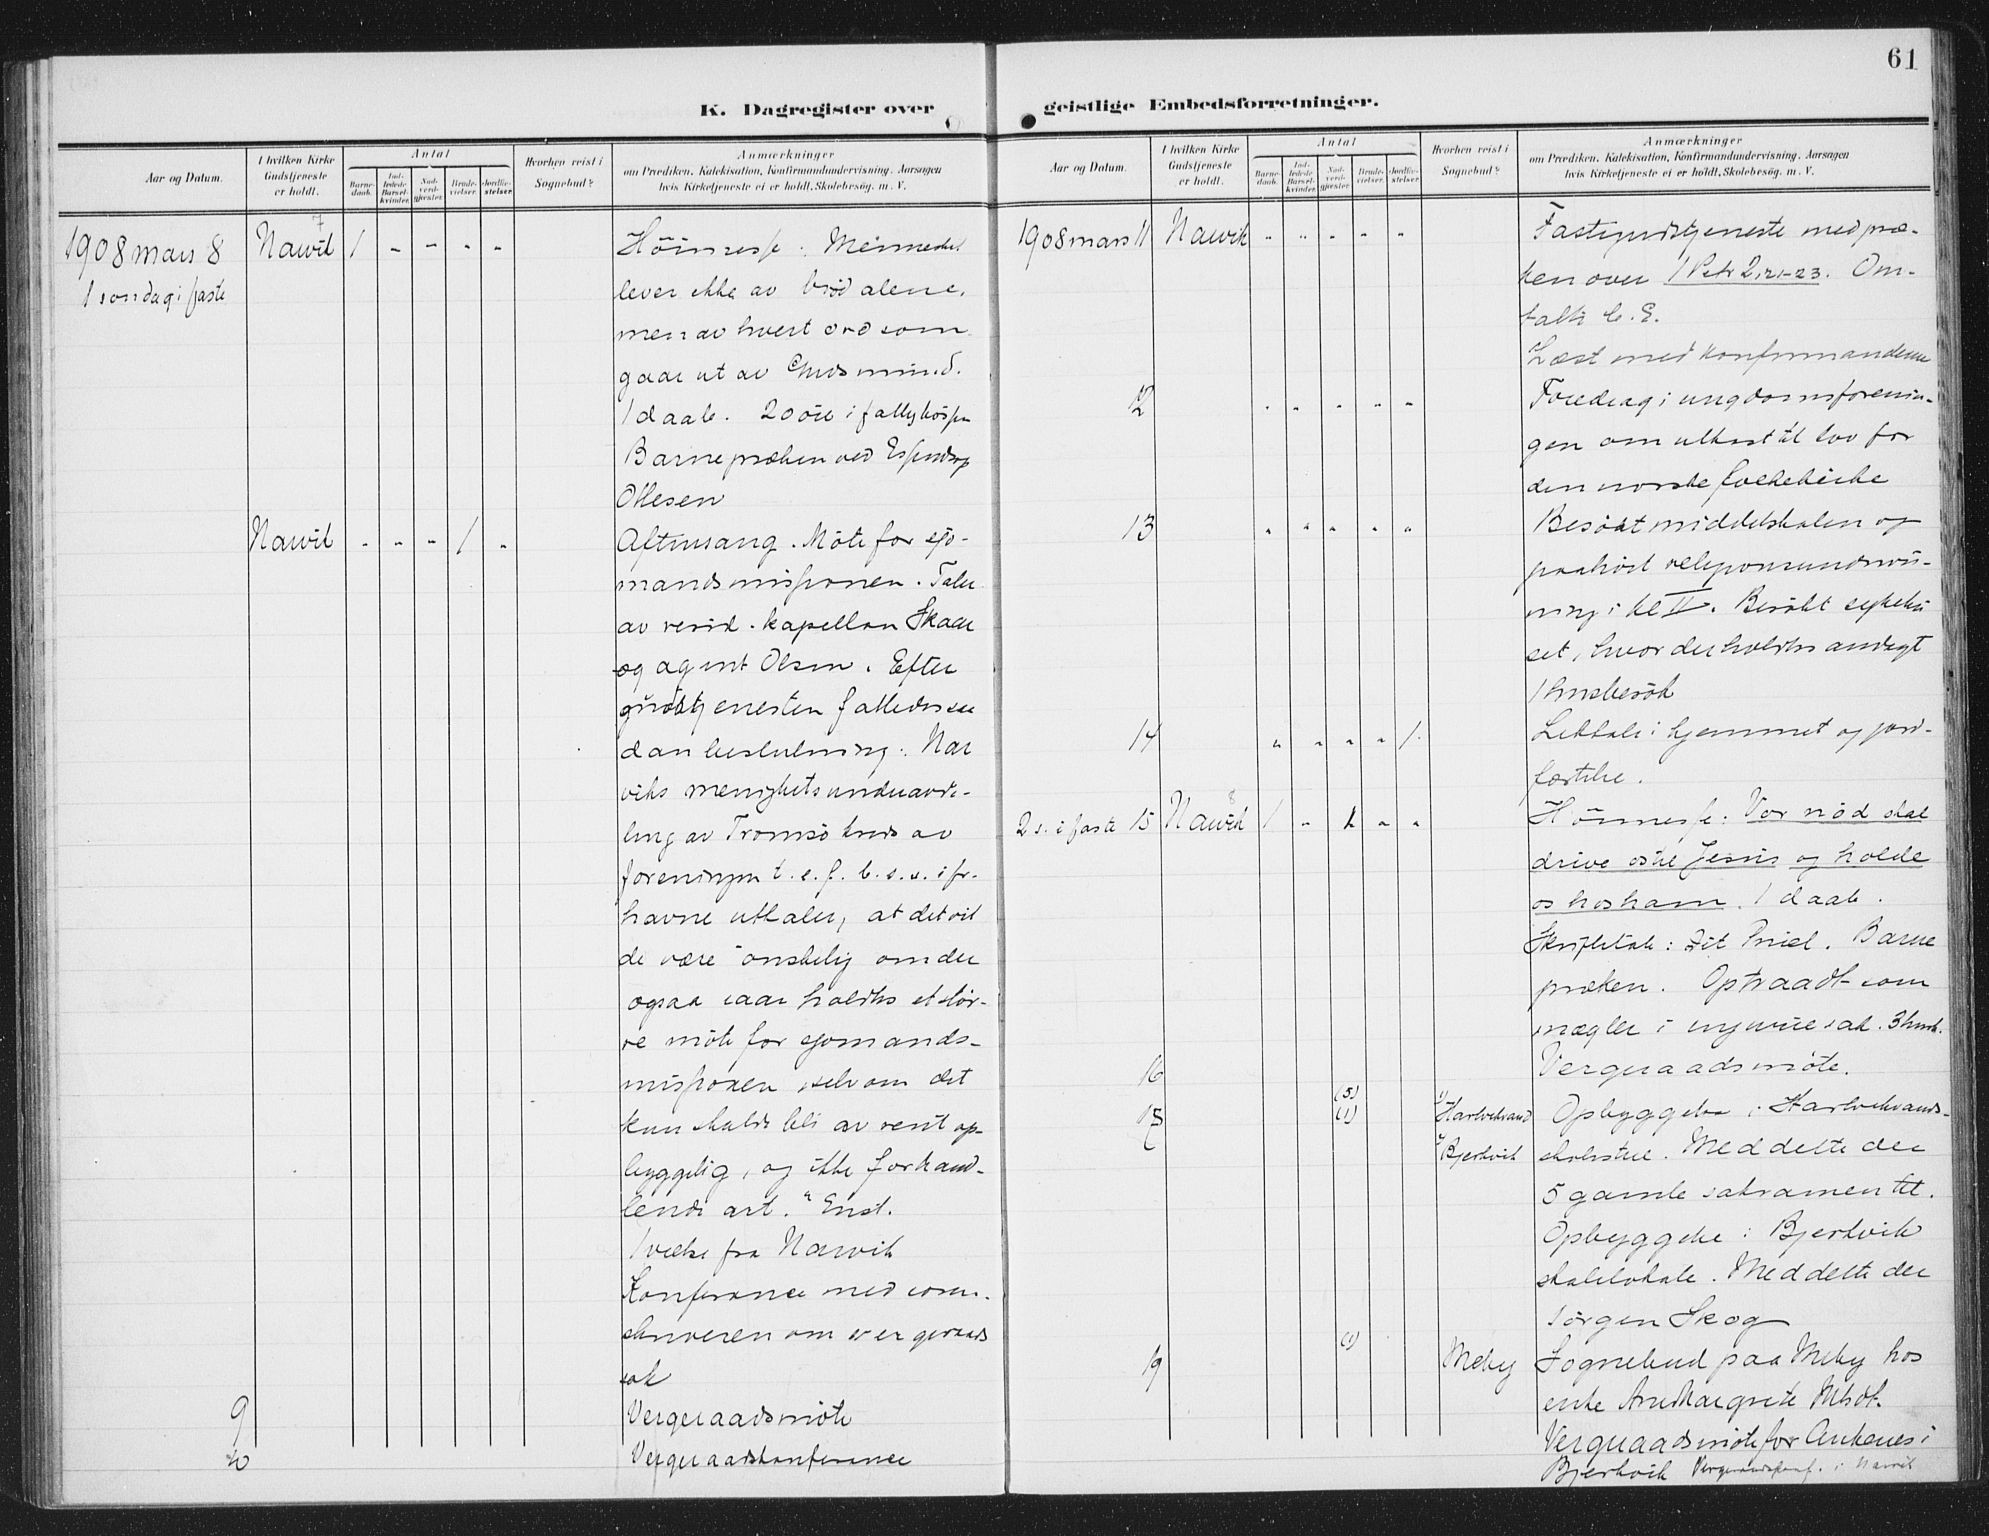 61
K. Dagregister over geistlige Embedsforretninger.
Aar og Datum.
I hvilken Kirke Gudstjeneste er holdt.
Antal
Barnedaab.
Indledede Barselkvinder.
Nadverdgjester.
Brudevielser.
Jordfæstelser.
Hvorhen reist i Sognebud?
Anmærkninger
om Prædiken, Katekisation, Konfirmandundervisning. Aarsagen
hvis Kirketjeneste ei er holdt, Skolebesøg. m. V.
1908 mars 8 Narvik 7 1 - - - - Höimesse: Mennesket
1 söndag i faste
lever ikke av bröd alene,
men av hvert ord som
gaar ut av Guds mund.
1 daab. 20 öre i
Barnepræken ved
Ottesen
Narvik - - - 1 - Aftensang. Möte for sjö-
mandsmissionen. Taler
av resid. kapellan Skaar
og agent Olsen. Efter
gudstjenesten fattedes saa
dan beslutning: Nar
viks menighets underavde-
ling av Tromsö kreds av
foreningen t. e. f. b. s. s. i fr.
havne uttaler, at det vil
de være önskelig om der
ogsaa iaar holdtes et stör-
re möte for sjömands-
missionen, selv om det
kun skulde bli av rent op-
byggelig, og ikke forhand-
lende art." Enst.
1 vielse fra Narvik
Konferance med soren-
skriveren om vergeraads
sak
9 Vergeraadsmöte
10 Vergeraadskonferance
Aar og Datum.
I hvilken Kirke Gudstjeneste er holdt.
Antal
Barnedaab.
Indledede Barselkvinder.
Nadverdgjester.
Brudevielser.
Jordfæstelser.
Hvorhen reist i Sognebud?
Anmærkninger
om Prædiken, Katekisation, Konfirmandundervisning. Aarsagen
hvis Kirketjeneste ei er holdt, Skolebesøg. m. V.
1908 mars 11 Narvik - - - - - Fastegudstjeneste med præ-
ken over 1 Petr 2,21-23. Om-
talt
Læst med konfirmanderne
12 - - - - - Foredrag i ungdomsforenin-
gen om utkast til lov for
den norske folkekirke
13 - - - - - Besökt middelskolen og
paahört religionsundervis-
ning i kl II. Besökt sykehu
set, hvor der holdtes andagt
1 husbesök
14 - - - - 1 Liktale i hjemmet og jord-
fæstelse.
2 s. i faste 15 Narvik 8 1 - - - Höimesse: Vor nöd skal
drive os til Jesus og holde
os hos ham. 1 daab.
Skriftetale: Barne
præken. Optraadt som
mægler i injuriesak. 3 husb.
16 Vergeraadsmöte.
(5)
(1) 1) Hartvikvand Opbyggelse i Hartvikvands-
2) Bjerkvik skolestue. Meddelte der
5 gamle sakramentet.
Opbyggelse i Bjerkvik
skolelokale. Meddelte der
Jörgen Skog
19 (1) Meby Sognebud paa Meby hos
enke
Vergeraadsmöte for Ankenes i
Bjerkvik Vergeraadskonf. i Narvik